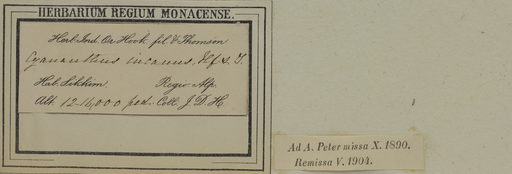 HERBARIUM REGIUM MONACENSE.
Herb. Ind. Or. Hook. fil. & Thomson
Cyananthus incanus, Hf & T.
Hab. Sikkim. Regio Alp.
Alt. 12-16,000 ped. Coll. J. D. H.
Ad A. Peter missa X. 1890.
Remissa V. 1904.